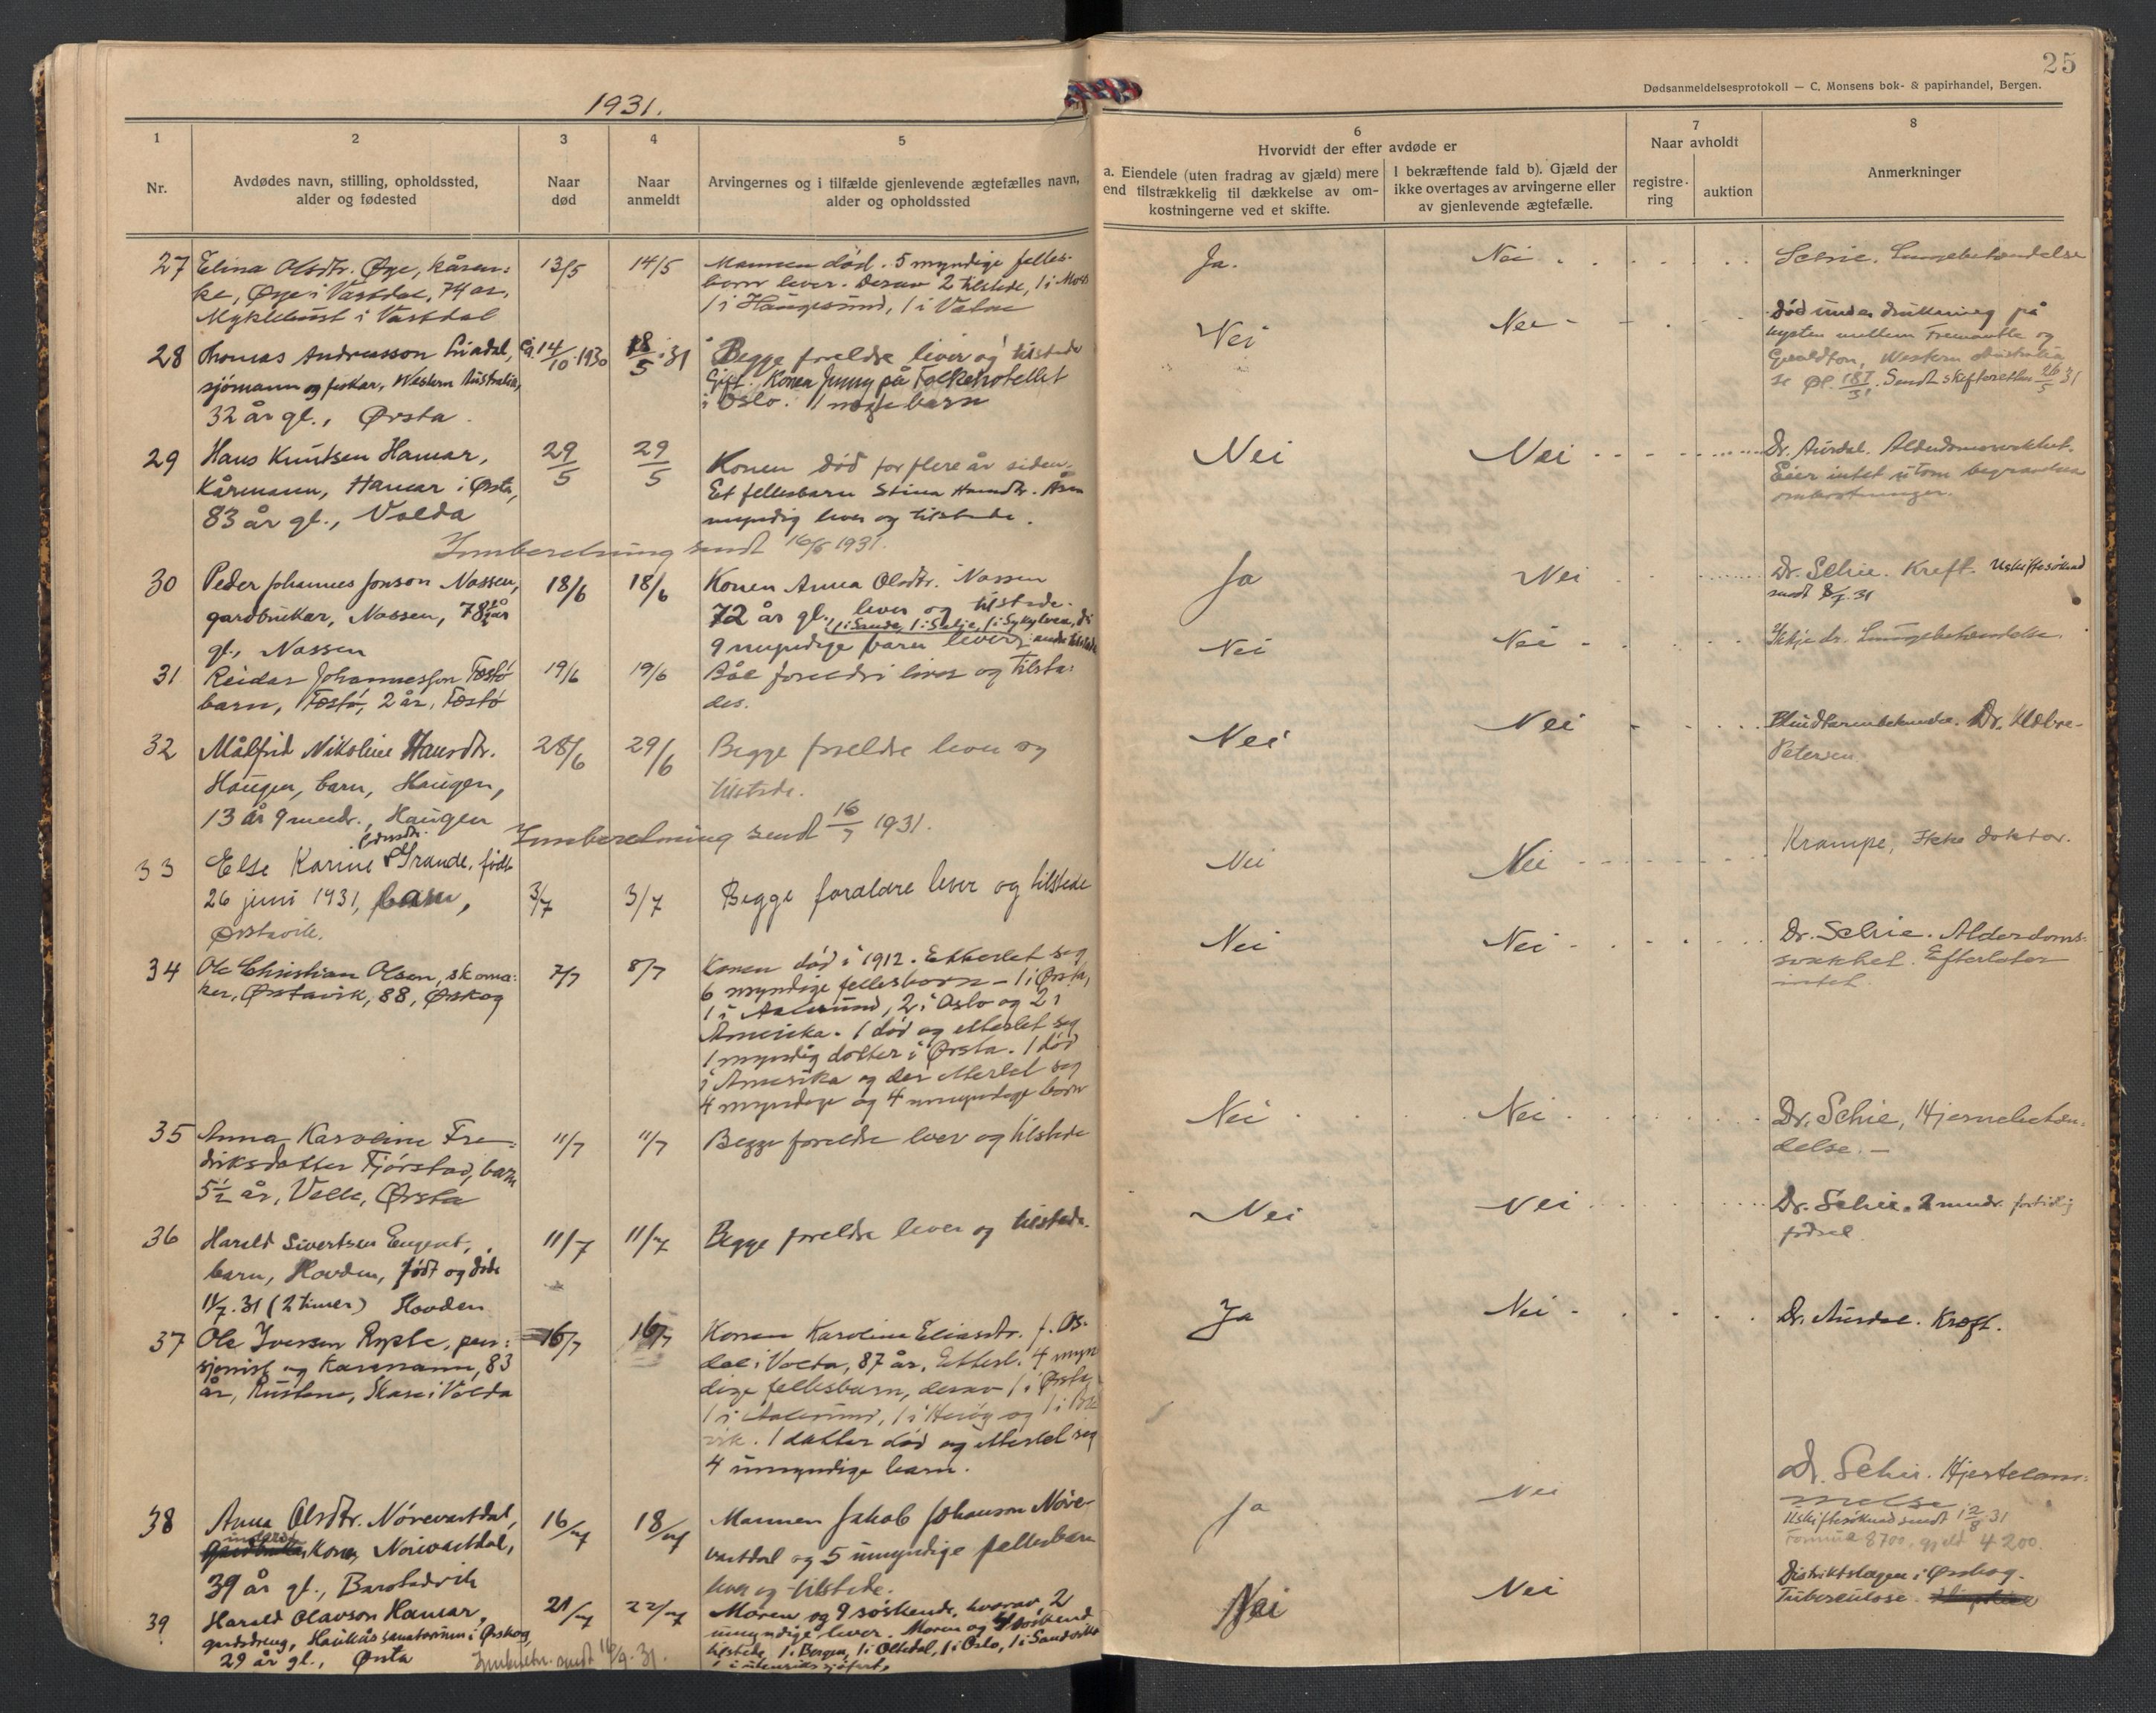 25
Dødsanmeldelsesprotokoll — C. Monsens bok- & papirhandel, Bergen.
1931.
1
2
3
4
5
Nr.
Avdødes navn, stilling, opholdssted,
alder og fødested
Naar
død
Naar
anmeldt
Arvingernes og i tilfælde gjenlevende ægtefælles navn,
alder og opholdssted
6
Hvorvidt der efter avdøde er
a. Eiendele (uten fradrag av gjæld) mere
end tilstrækkelig til dækkelse av om-
kostningerne ved et skifte.
I bekræftende fald b). Gjæld der
ikke overtages av arvingerne eller
av gjenlevende ægtefælle.
7
Naar avholdt
registre-
ring
auktion
8
Anmerkninger
27 Elina Olsdtr. Øye, kåren:
ke, Øye i Vastdal, 74 år,
Myklebust i Vastdal
13/5
14/5
Mannen død. 5 myndige felles-
born lever. Derav 2 tilstede, 1 i Moss
1 i Haugesund, 1 i Vatne
Ja.
Nei
Schie. Lungebetændelse
28 Thomas Andreasson Liadal,
sjømann og fiskar, Western Australia,
32 år gl., Ørsta.
Ca. 14/10 1930
18/5 31
Begge foreldre lever og tilstede
Gift. Konen Jenny på Folkehotellet
i Oslo. 1 barn
Nei
Nei
Død under drukning på
kysten mellem Fremantle og
Geraldton, Western Australia
Sendt skifteretten 26/5 31
29 Hans Knutsen Hamar,
Kårmann, Hamar i Ørsta,
83 år gl., Volda
29/5
29/5
Konen død for flere år siden.
Et fellesbarn Stina Hansdtr. Åsen
myndig lever og tilstede.
Nei
Nei
Dr. Aurdal. Alderdomssvakhet.
Eier intet utom begravelses
omkostninger.
Innberetning sendt 16/6 1931.
30 Peder Johannes Jonson Nassen,
gardbrukar, Nassen, 78½ år
gl., Nassen
18/6
18/6
Konen Anna Olsdtr. Nassen
72 år gl., lever og tilstede.
1 i Sande, 1 i Selje, 1 i Sykylven, di
9 myndige barn lever andre tilstede
Ja
Nei
Dr. Schie. Kreft. Uskiftesøknad
sendt 8/7.31
31 Reidar Johannesson Fostø
barn, Fostø, 2 år, Fostø
19/6
19/6
Båe foreldri liver og tilsta:
des.
Nei
Nei
Ikkje dr. Lungebetændelse
32 Målfrid Nikoline Hansdtr.
Haugen, barn, Haugen,
13 år 9 mndr., Haugen
28/6
29/6
Begge foreldre lever og
tilstede.
Nei
Nei
Blindtarmbetendelse. Dr. Holbye-
Petersen
Innberetning sendt 16/7 1931.
33 Else Karine Grande, født
26 juni 1931, barn,
Ørstavik.
3/7
3/7
Begge forældre lever og tilstede
Nei
Nei
Krampe, Ikke doktor.
34 Ole Christian Olsen, skoma:
ker, Ørstavik, 88, Ørskog
7/7
8/7
Konen død i 1912. Etterlet seg
6 myndige fellesborn – 1 i Ørsta,
1 i Aalesund, 2 i Oslo og 2 i
Amerika. 1 død og etterlet seg
1 myndig dotter i Ørsta. 1 død
i Amerika og der etterlet seg
4 myndige og 4 umyndige born
Nei
Nei
Dr. Schie. Alderdoms:
svakhet. Efterlater
intet.
35 Anna Karoline Fre:
driksdatter Fjørstad, barn
5½ år, Velle, Ørsta
11/7
11/7
Begge foreldre lever og tilstede
Nei
Nei
Dr. Schie, Hjernebeten:
delse. –
36 Harald Sivertsen Engeset,
barn, Hovden, født og døde
11/7.31 (2 timer) Hovden
11/7
11/7
Begge foreldre lever og tilstede.
Nei
Nei
Dr. Schie. 2 mndr. fortidlig
fødsel
37 Ole Iversen Rypte, pen:
sjonist og Kaarmann, 83
år, Rustene, Skare i Volda
16/7
16/7
Konen Karoline Eliasdtr. f. Os-
dal i Volda, 87 år. Etterl. 4 myn
dige fellesbarn, derav 1 i Ørsta,
1 i Aalesund, 1 i Herøy og 1 i
vik. 1 datter død og etterlet seg
4 umyndige barn.
Ja
Nei
Dr. Aurdal. Kreft.
38 Anna Olsdtr. Nørevartdal,
Kone, Nørevartdal,
39 år gl., Barstadvik
16/7
18/7
Mannen Jakob Johanson Nøre-
vartdal og 5 umyndige fellesbarn
lever og tilstede.
Ja
Nei
Dr. Schie. Hjertelam:
melse
Uskiftesøknad sendt 12/8 31
Formue 8700, gjeld 4200.
39 Harald Olavson Hamar,
gardsdreng, Haukås sanatorium i Ørskog,
29 år gl., Ørsta
21/7
22/7
Moren og 9 søskende, hvorav 2
umyndige lever. Moren og 4 søskend
tilstede, 1 i Bergen, 1 i Oltedal, 1 i Oslo, 1 i Sandvika
1 i utenriks sjøfart.
Nei
Nei
Distriktslægen i Ørskog.
Tuberculose.
Innberetn. sendt 16/9. 31.